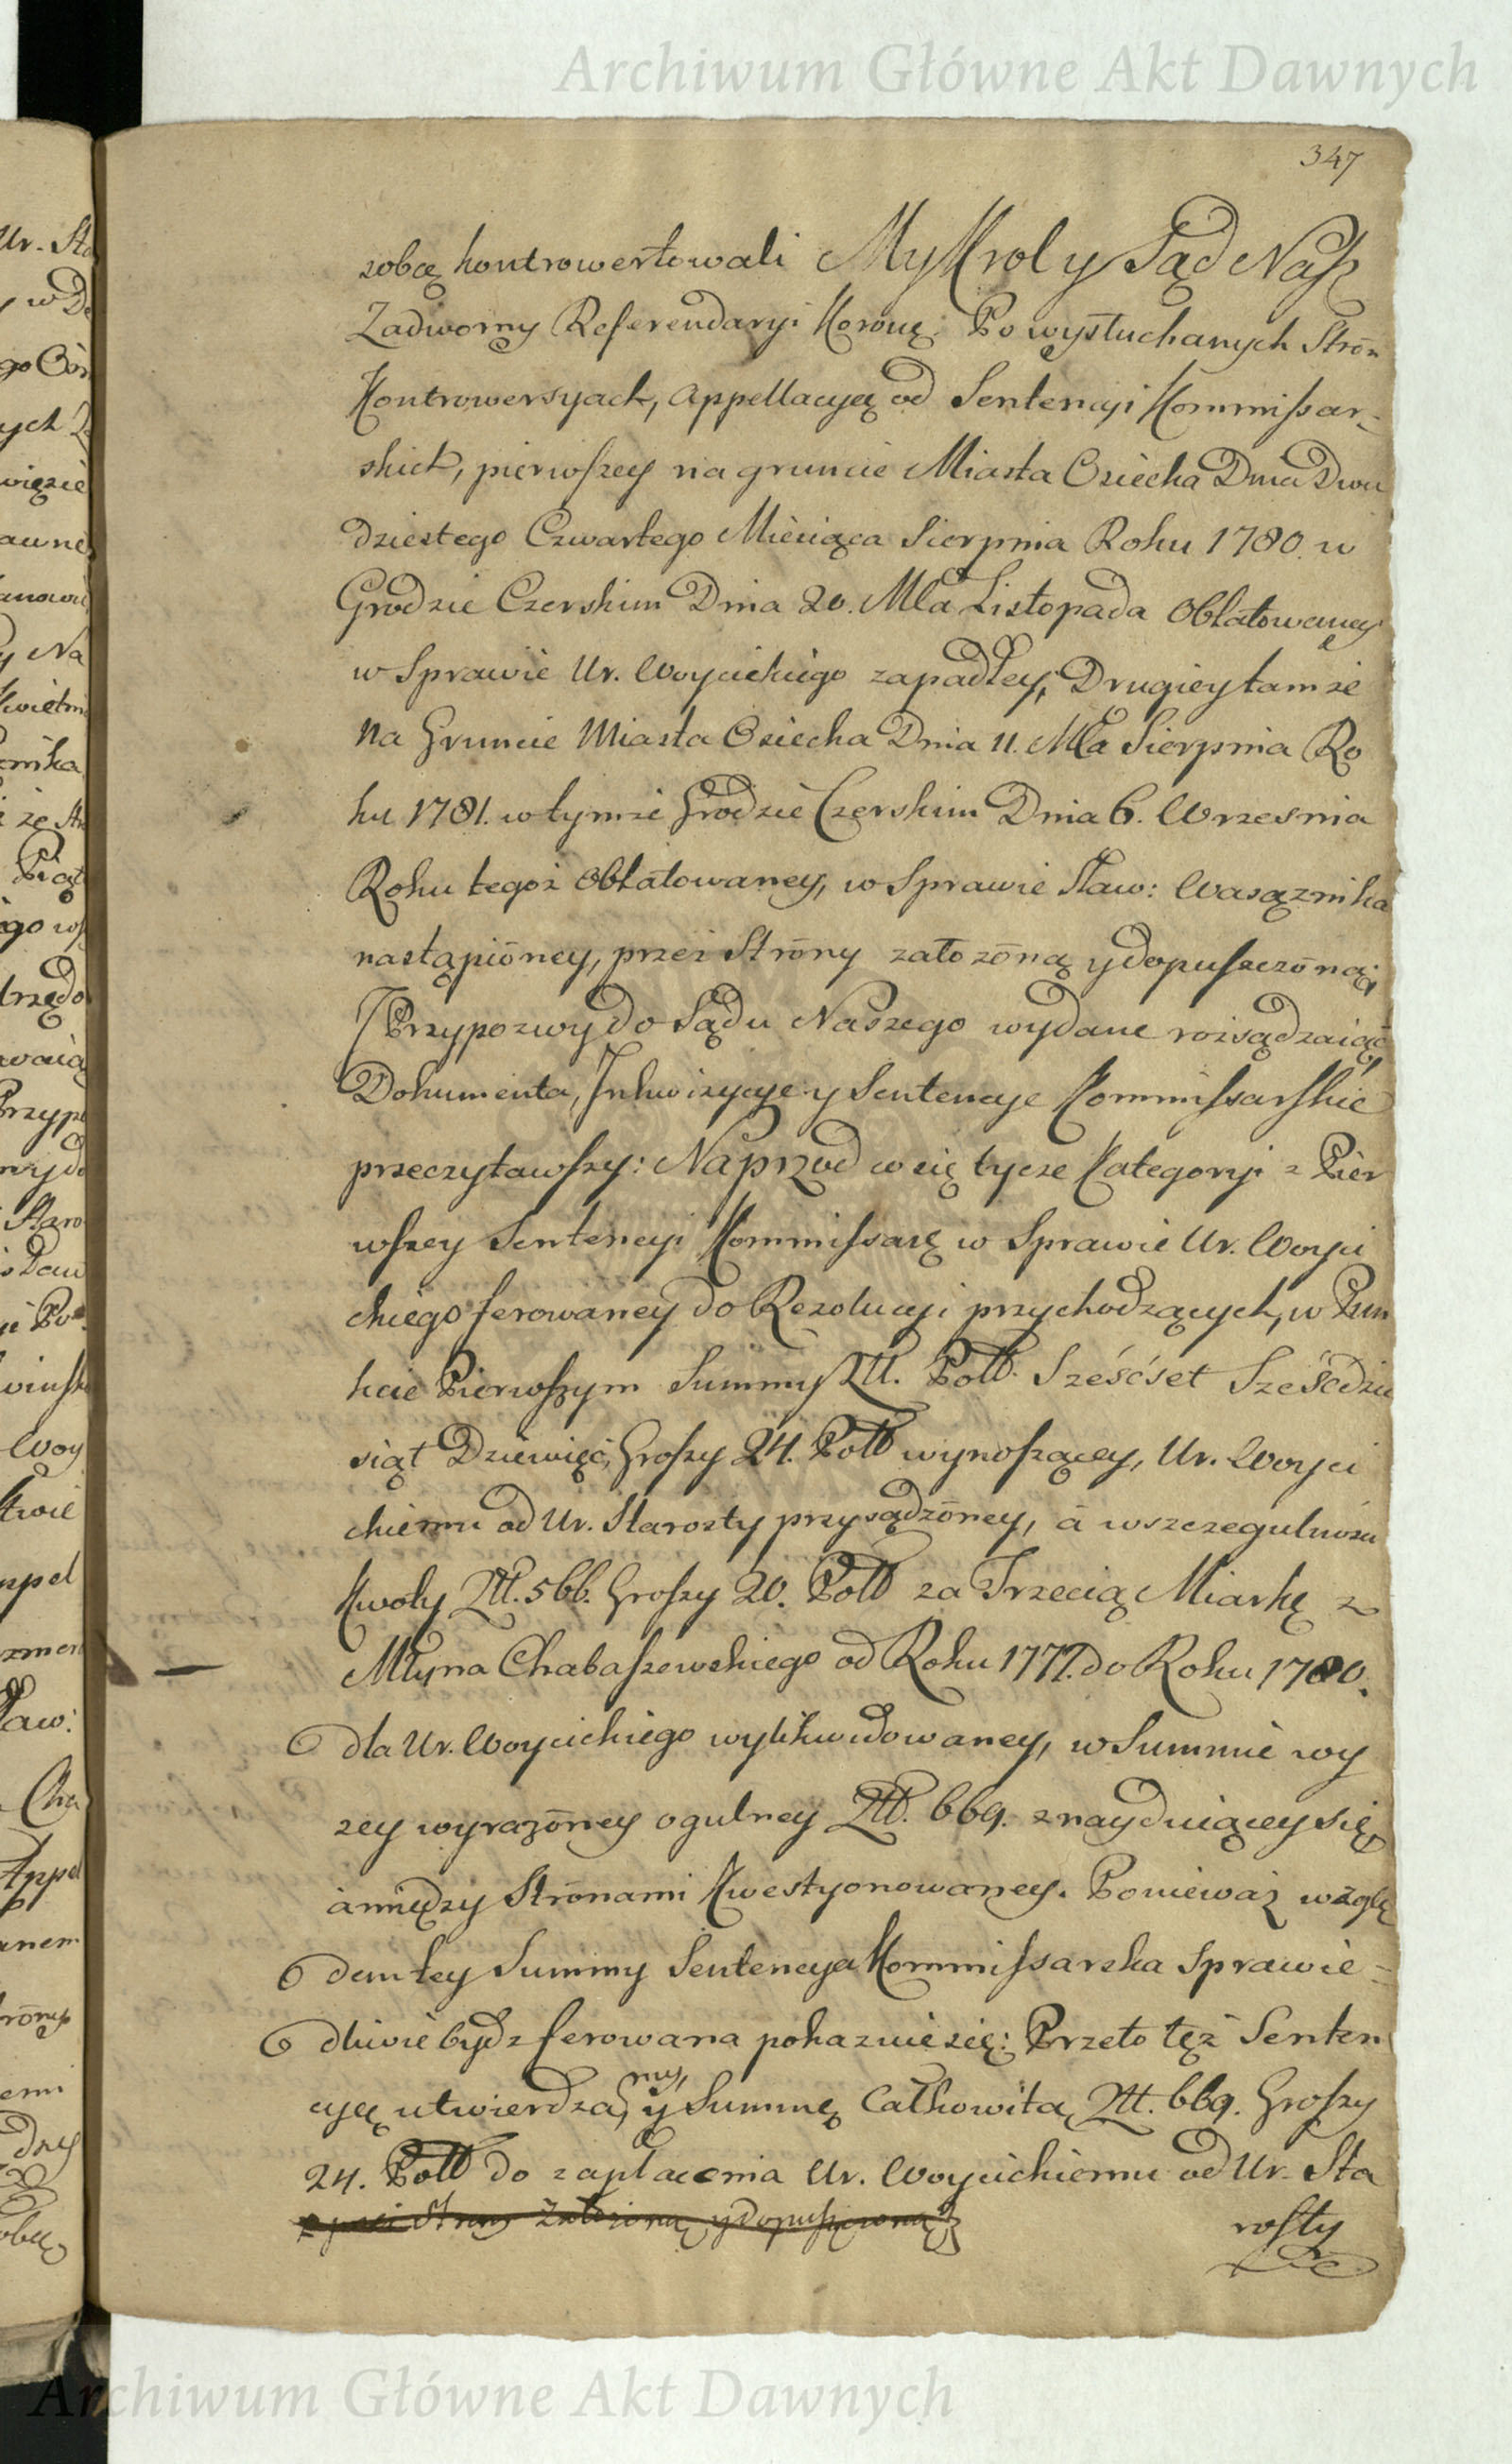 Archiwum Główne Akt Dawnych
347
sobą kontrowertowali My Krol y Sąd Nasz
Zadworny Referendaryi Koronę: Po wysłuchanych Strōn
Kontrowersyach, Appellacyą od Sentencyi Kommissar-
skich, pierwszey na gruncie Miasta Osiecka Dnia Dwu
dziestego Czwartego Miesiąca Sierpnia Roku 1780. w
Grodzie Czerskim Dnia 20. Mca Listopada Oblatowaney
w Sprawie Ur. Woycickiego zapadłey, Drugiey tamże
Na Gruncie Miasta Osiecka Dnia 11. Mca Sierpnia Ro
ku 1781. w tymże Grodzie Czerskim Dnia 6. Wrzesnia
Roku tegoż Oblatowaney, w Sprawie Sław: Wasążnika
nastąpiōney, przez Strōny załozōną y dopuszczōną;
Przypozwy do Sądu Naszego wydane rozsądzaiąc,
Dokumenta, Inkwizycye y Sentencye Kommissarskie
przeczytawszy: Naprzod co się tycze Kategoryi z Pier
wszey Sentencyi Kommissarę w Sprawie Ur. Woyci
ckiego ferowaney do Rezolucyi przychodzących, w Pun
kcie Pierwszym Summy Złł. Poll. Sześćset Sześcdzie
siąt Dziewięć, Groszy 24. Poll wynoszącey, Ur. Woyci
ckiemu od Ur. Starosty przysądzōney, á w szczegulnosci
Kwoty Złł. 566. Groszy 20. Poll za Trzecią Miarkę z
Młyna Chabaszewskiego od Roku 1777. do Roku 1780.
dla Ur. Woycickiego wylikwidowaney, w Summie wy
zey wyrazōney ogulney Złł. 669. znayduiącey się,
á między Strōnami Kwestyonowaney. Ponieważ wzglę
dem tey Summy Sentencya Kommissarska Sprawie-
dliwie bydz ferowana pokazuie się: Przeto też Senten
cyą utwierdzamy, y Summę Całkowitą Złł. 669. Groszy
24. Poll do zapłacenia Ur. Woycickiemu od Ur. Sta
przez Strony Załozoną y dopuszczoną
rosty
Archiwum Główne Akt Dawnych